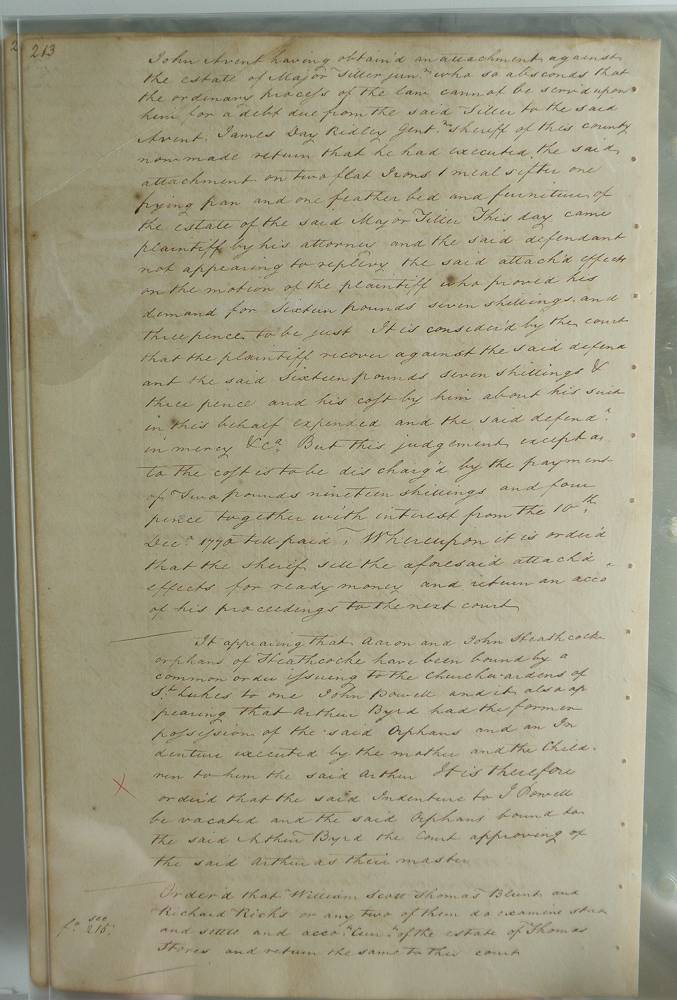 213
John Avent having obtain'd an attachment against
the estate of Major Tiller junr. who so absconds that
the ordinary process of the law cannot be serv'd upon
him for a debt due from the said Tiller to the said
Avent. James Day Ridley Gent. sheriff of this county
now made return that he had executed the said
attachment on two flat Irons 1 meal sifter one
frying pan and one feather bed and furniture of
the estate of the said Major Tiller This day came
plaintiff by his attorney and the said defendant
not appearing to replevy the said attach'd effects
on the motion of the plaintiff who proved his
demand for Sixteen pounds seven shillings and
three pence to be just It is consider'd by the court
that the plaintiff recover against the said defend
ant the said Sixteen pounds seven shillings &
three pence and his cost by him about his suit
in this behalf expended and the said defendt.
in mercy &ca. But this judgement except as
to the cost is to be discharg'd by the payment
of Two pounds nineteen shillings and four
pence together with interest from the 10th.
Decr. 1770 till paid, Whereupon it is order'd
that the sherif sell the aforesaid attach'd
effects for ready money and return an acco
of his proceedings to the next court
It appearing that Aaron and John Heathcocke
orphans of Heathcocke have been bound by a
common order issueing to the Churchwardens of
St. Lukes to one John Powell and it also ap
pearing that Arthur Byrd had the former
possession of the said Orphans and an In
denture executed by the mother and the Child
ren to him the said Arthur It is therefore
order'd that the said Indenture to J Powell
be vacated and the said Orphans bound to
the said Arthur Byrd the Court approving of
the said Arthur as their master
Order'd that William Scott Thomas Blunt and
Richard Ricks or any two of them do examine state
see
fo. 215.
and settle and acco. of the estate of Thomas
and return the same to this court